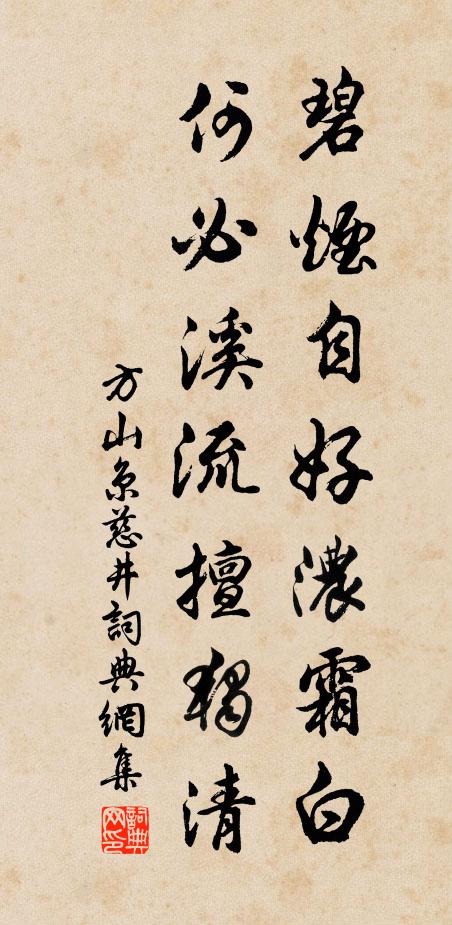 碧煙自好濃霜白
何必溪流擅獨清
方山京慈井詞典網集
詞典網印